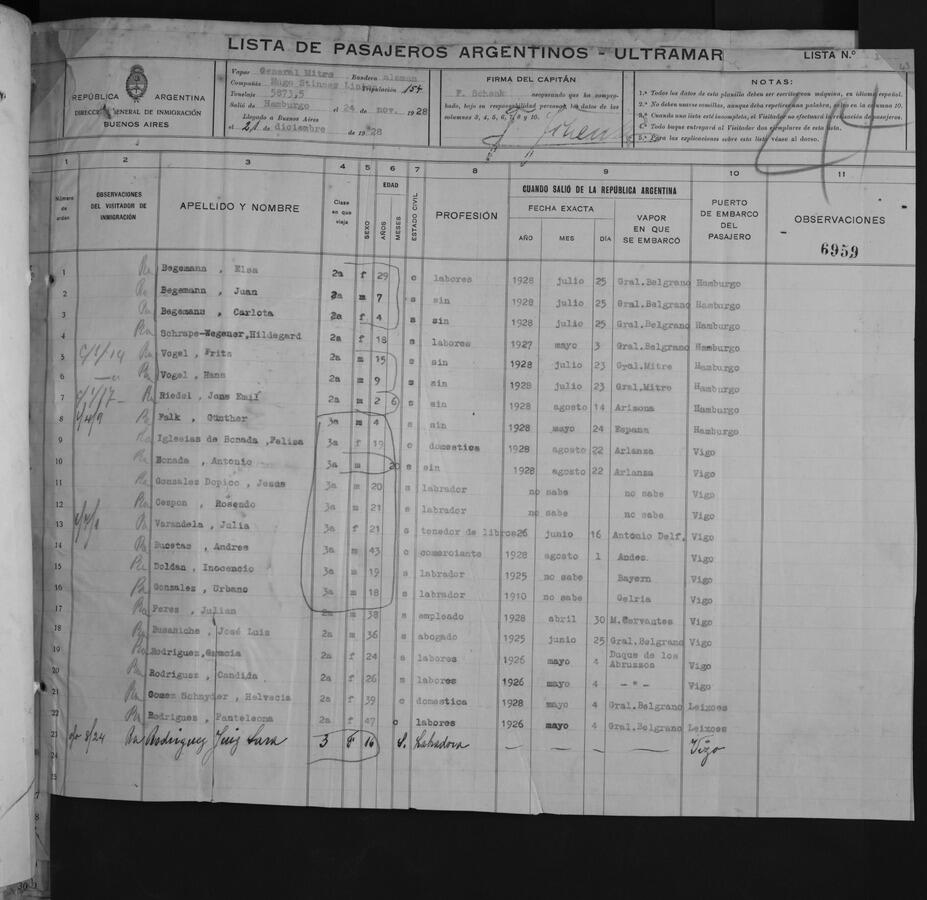 LISTA DE PASAJEROS ARGENTINOS - ULTRAMAR
LISTA N.º
REPÚBLICA ARGENTINA
DIRECCIÓN GENERAL DE INMIGRACIÓN
BUENOS AIRES
Vapor General Mitre Bandera alemán
Compañía Hugo Stinnes Tripulación 154
Tonelaje 5873,5
Salió de Hamburgo el 24 de nov. 1928
Llegado a Buenos Aires
el 21 de diciembre de 1928
FIRMA DEL CAPITÁN
F. Schenk asegurando que ha comprobado, bajo su responsabilidad personal, los datos de las columnas 3, 4, 5, 6, 7, 8, 9 y 10.
NOTAS:
1.ª Todos los datos de esta planilla deben ser escritos en máquina, en idioma español.
2.ª No deben usarse comillas, aunque deba repetirse una palabra, salvo en la columna 10.
3.ª Cuando una lista esté incompleta, el Visitador no efectuará la recepción de pasajeros.
4.ª Todo buque entregará al Visitador dos ejemplares de esta lista.
5.ª Para las explicaciones sobre esta lista véase al dorso.
1 2 3 4 5 6 7 8 9 10 11
Número de orden
OBSERVACIONES DEL VISITADOR DE INMIGRACIÓN
APELLIDO Y NOMBRE
Clase en que viaja
SEXO
EDAD
AÑOS
MESES
ESTADO CIVIL
PROFESIÓN
CUANDO SALIÓ DE LA REPÚBLICA ARGENTINA
FECHA EXACTA
AÑO MES DÍA
VAPOR EN QUE SE EMBARCÓ
PUERTO DE EMBARCO DEL PASAJERO
OBSERVACIONES
6959
1 Begemann, Elsa 2a f 29 c labores 1928 julio 25 Gral.Belgrano Hamburgo
2 Begemann, Juan 2a m 7 s sin 1928 julio 25 Gral.Belgrano Hamburgo
3 Begemann, Carlota 2a f 4 s sin 1928 julio 25 Gral.Belgrano Hamburgo
4 Schrape-Wegener, Hildegard 2a f 18 c labores 1927 mayo 3 Gral.Belgrano Hamburgo
5 Vogel, Frits 2a m 15 s sin 1928 julio 23 Gral.Mitre Hamburgo
6 Vogel, Hans 2a m 9 s sin 1928 julio 23 Gral.Mitro Hamburgo
7 Riedel, Jens Emil 2a m 2 6 s sin 1928 agosto 14 Arizona Hamburgo
8 Falk, Günther 3a m 4 s sin 1928 mayo 24 Espana Hamburgo
9 Iglesias de Bonada, Felisa 3a f 19 c domestica 1928 agosto 22 Arlanza Vigo
10 Bonada, Antonio 3a m 20 s sin 1928 agosto 22 Arlanza Vigo
11 Gonzalez Dopico, Jesus 3a m 20 s labrador no sabe no sabe Vigo
12 Cespon, Rosendo 3a m 21 s labrador no sabe no sabe Vigo
13 Varandela, Julia 3a f 21 s tenedor de libros 26 junio 16 Antonio Delf. Vigo
14 Bucetas, Andres 3a m 43 c comerciante 1928 agosto 1 Andes. Vigo
15 Doldan, Inocencio 3a m 19 s labrador 1925 no sabe Bayern Vigo
16 Gonzalez, Urbano 3a m 18 s labrador 1910 no sabe Gelria Vigo
17 Perez, Julian 2a m 38 s empleado 1928 abril 30 M.Cervantes Vigo
18 Busaniche, José Luis 2a m 36 s abogado 1925 junio 25 Gral.Belgrano Vigo
19 Rodriguez, Gracia 2a f 24 s labores 1926 mayo 4 Duque de los Abruzzos Vigo
20 Rodriguez, Candida 2a f 26 s labores 1926 mayo 4 - " - Vigo
21 Gomez Schnyder, Helvecia 2a f 39 c domestica 1928 mayo 4 Gral.Belgrano Leixoes
22 Rodriguez, Panteleona 2a f 47 c labores 1926 mayo 4 Gral.Belgrano Leixoes
23 Rodriguez Sara 3 F 16 S. Labradora — — — — Vigo
24
25